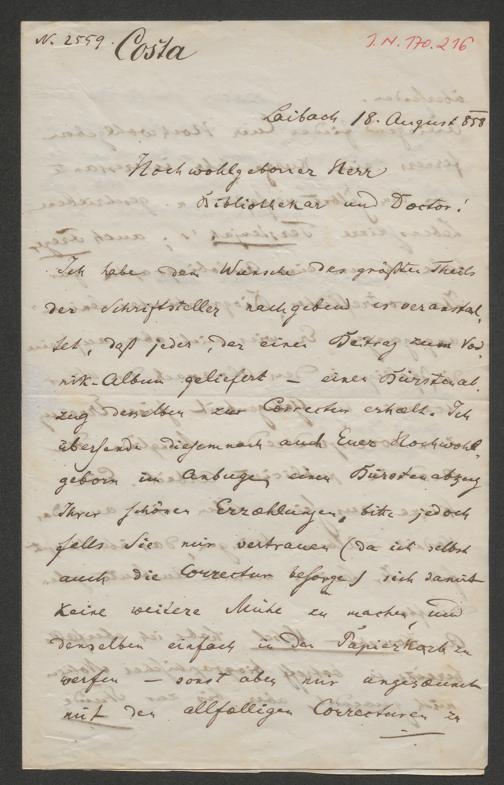 N. 2559. Costa
I.N. 170.216
Laibach 18. August 858
Hochwohlgeborner Herr
Bibliothekar und Doctor!
Ich habe dem Wunsche des größten Theils
der Schriftsteller nachgebend es veranstal-
tet, daß jeder, der einen Beitrag zum Vod-
nik-Album geliefert – einen Bürstenab-
zug desselben zur Correctur erhält. Ich
übersende diesemnach auch Euer Hochwohl-
geborn im Anbuge einen Bürstenabzug
Ihrer schönen Erzählungen, bitte jedoch
falls Sie mir vertrauen (da ich selbst
auch die Correctur besorge) sich damit
keine weitere Mühe zu machen, und
denselben einfach in den Papierkorb zu
werfen – sonst aber mir
mit den allfälligen Correcturen zu